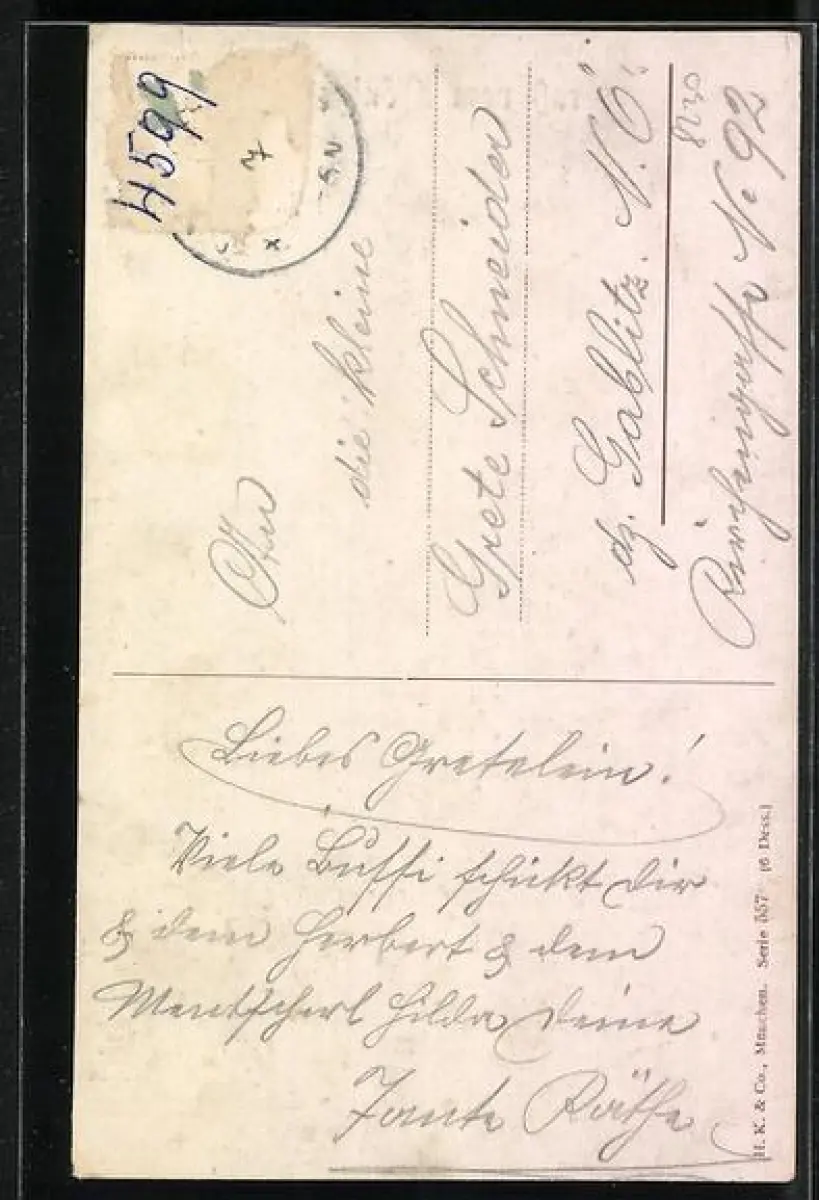 4599
7
X
An
die kleine
Grete Schneider
dz. Gablitz. N.Ö.
No 92
Liebes Gretelein!
Viele Bussi schickt Dir
& dem Herbert & dem
Mentscherl Hilda Deine
Tante Käthe
H. K. & Co., München. Serie 557 (6 Dess.)